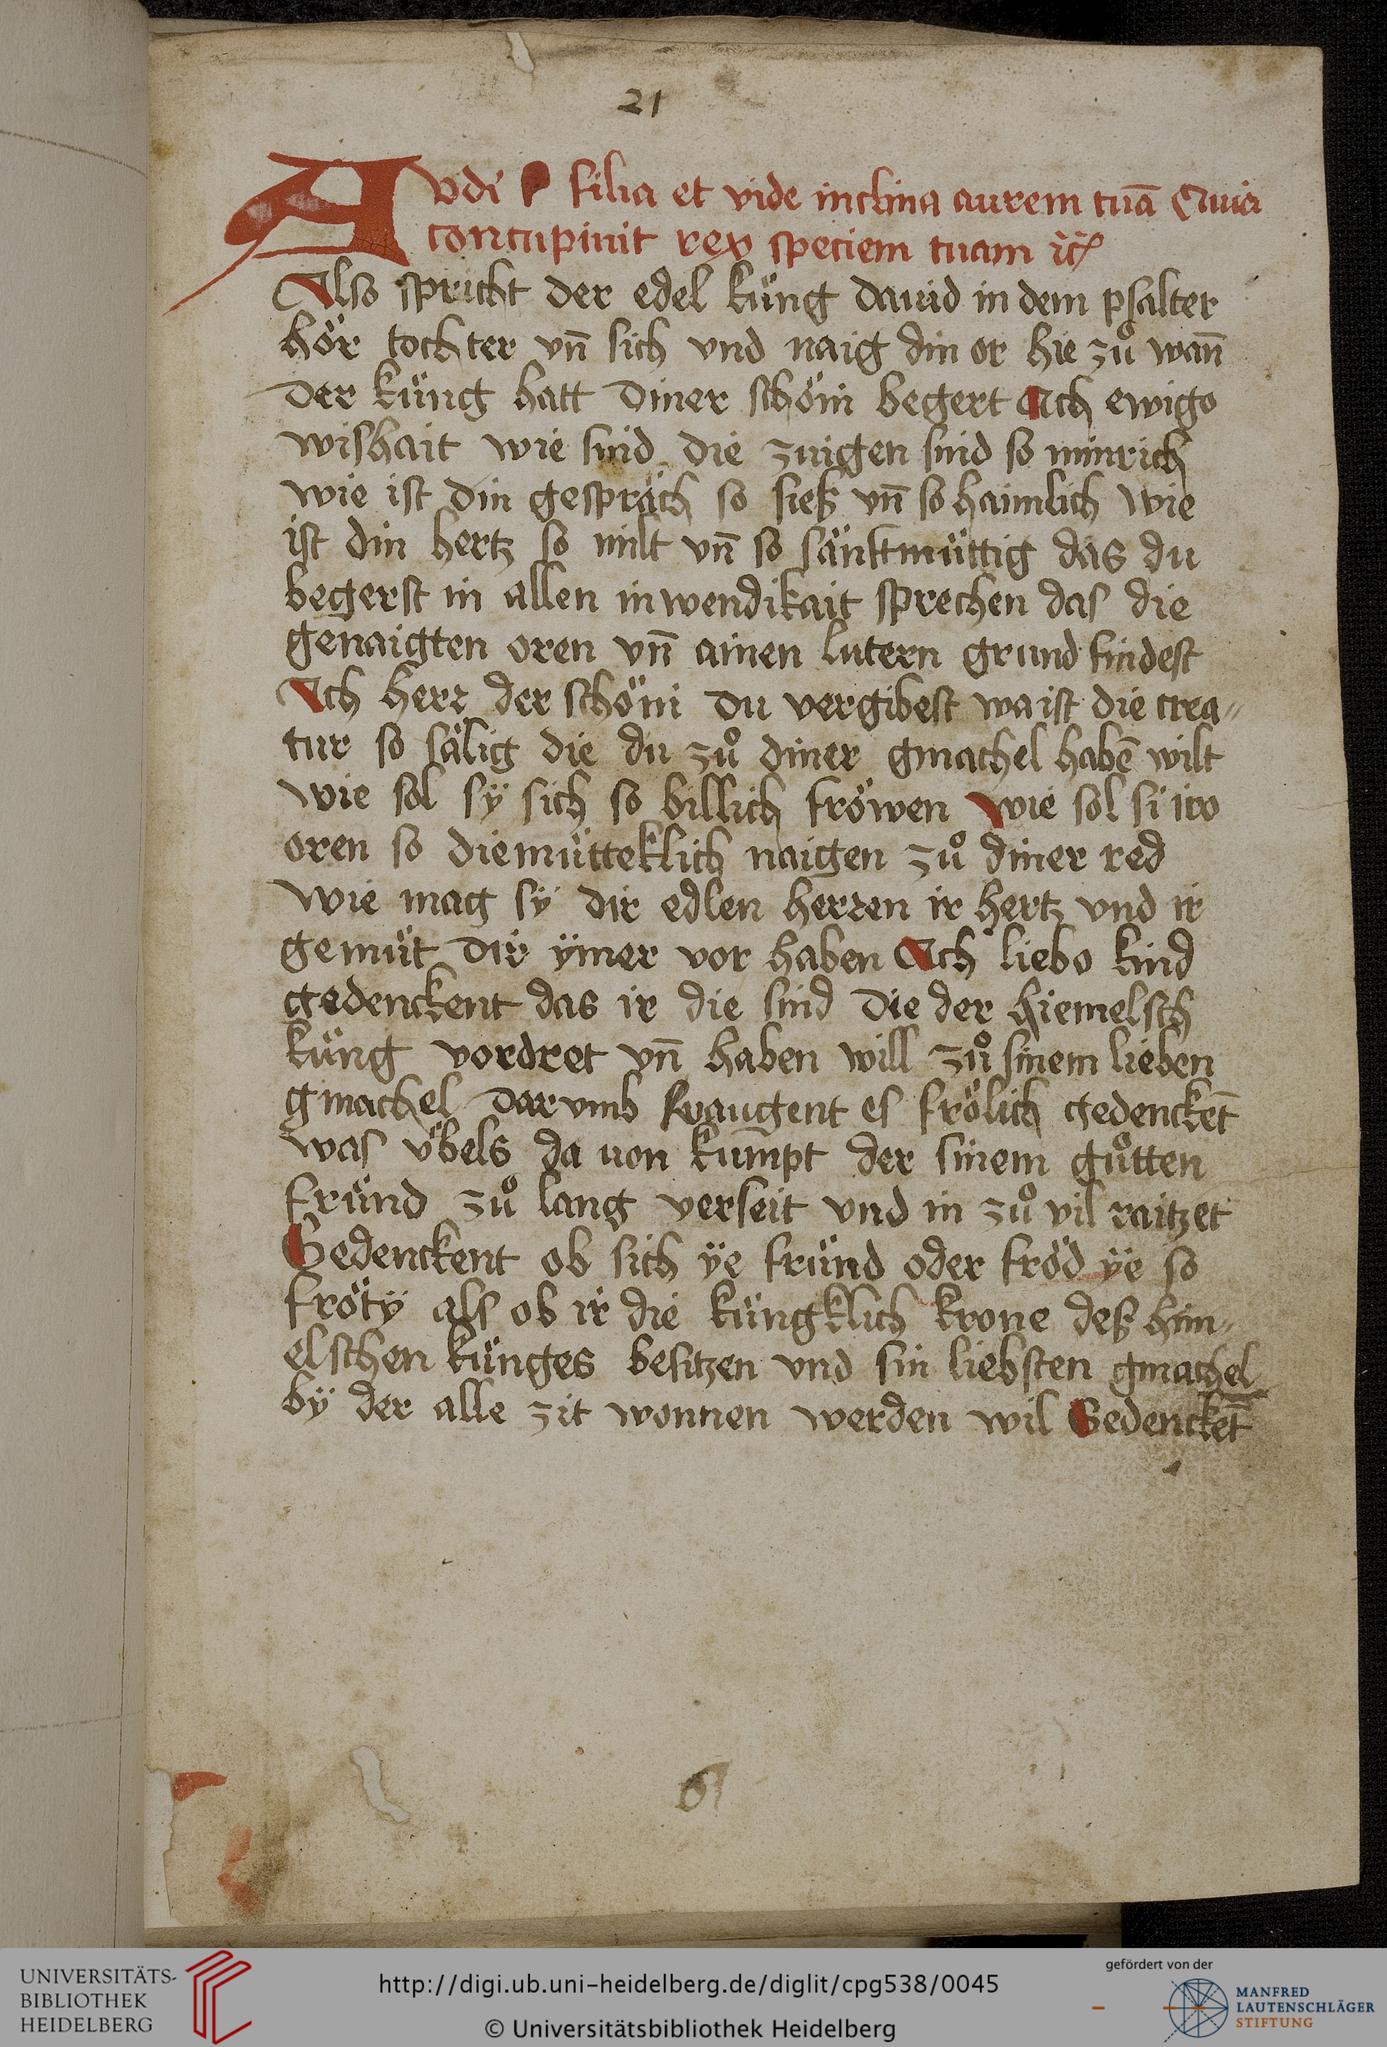 21
Avdi filia et vide inclina aurem tuā Quia
concupiuit rex speciem tuam
Also spricht der edel küng dauid in dem psalter
hör tochter vn̄ sich vnd naig din or hie zů wan̄
der küng hatt diner schöni begert Ach ewigo
wishait wie sind die zuigen sind so minrich
wie ist din gespräch so sieß vn̄ so haimlich wie
ist din hertz so milt vn̄ so sänkmüttig das du
begerst in allen inwendikait sprechen das die
genaigten oren vn̄ ainen lutern grund findest
Ach herr der schöni du vergibest wa ist die crea〃
tur so sälig die du zů diner gmachel habē wilt
wie sol sÿ sich so billich fröwen wie sol si iro
oren so diemütteklich naigen zů diner red
wie mag sÿ dir edlen herren ir hertz vnd ir
gemüt dir ÿmer vor haben Ach liebo kind
gedenckent das ir die sind die der hiemelsch
küng vordret vn̄ haben will zů sinem lieben
gmachel dar vmb es frölich gedencket̄
was übels da uon kumpt der sinem gůtten
fründ zů lang verseit vnd in zů vil raitzet
Gedenckent ob sich ÿe fründ oder fröd ÿe so
frötÿ als ob ir die küngklich krone deß him〃
elschen künges besitzen vnd sin liebsten gmachel
bÿ der alle zit wonnen werden wil Gedencket̄
UNIVERSITÄTS-
BIBLIOTHEK
HEIDELBERG
http://digi.ub.uni-heidelberg.de/diglit/cpg538/0045
© Universitätsbibliothek Heidelberg
gefördert von der
MANFRED
LAUTENSCHLÄGER
STIFTUNG